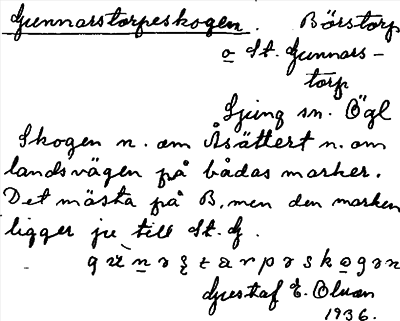 Gunnarstorpeskogen. Börstorp
o St. Gunnars-
torp
Ljung sn. Ögl
Skogen n. om Åsättert n. om
landsvägen på bådas marker.
Det mästa på B, men den marken
ligger ju till St. G.
Gustaf E. Olson
1936.